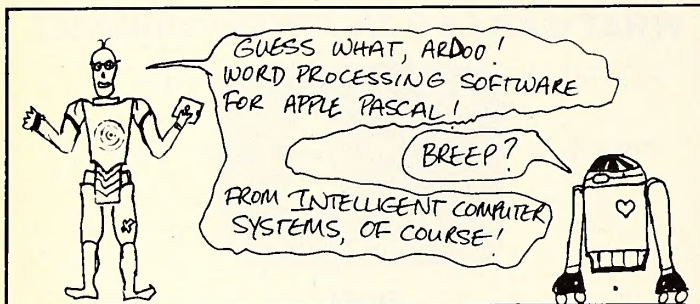 GUESS WHAT, ARDOO!
WORD PROCESSING SOFTWARE
FOR APPLE PASCAL!
BREEP?
FROM INTELLIGENT COMPUTER
SYSTEMS, OF COURSE!